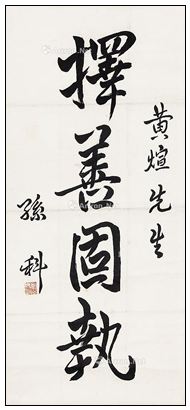 黃煊先生
擇善固執
孫科